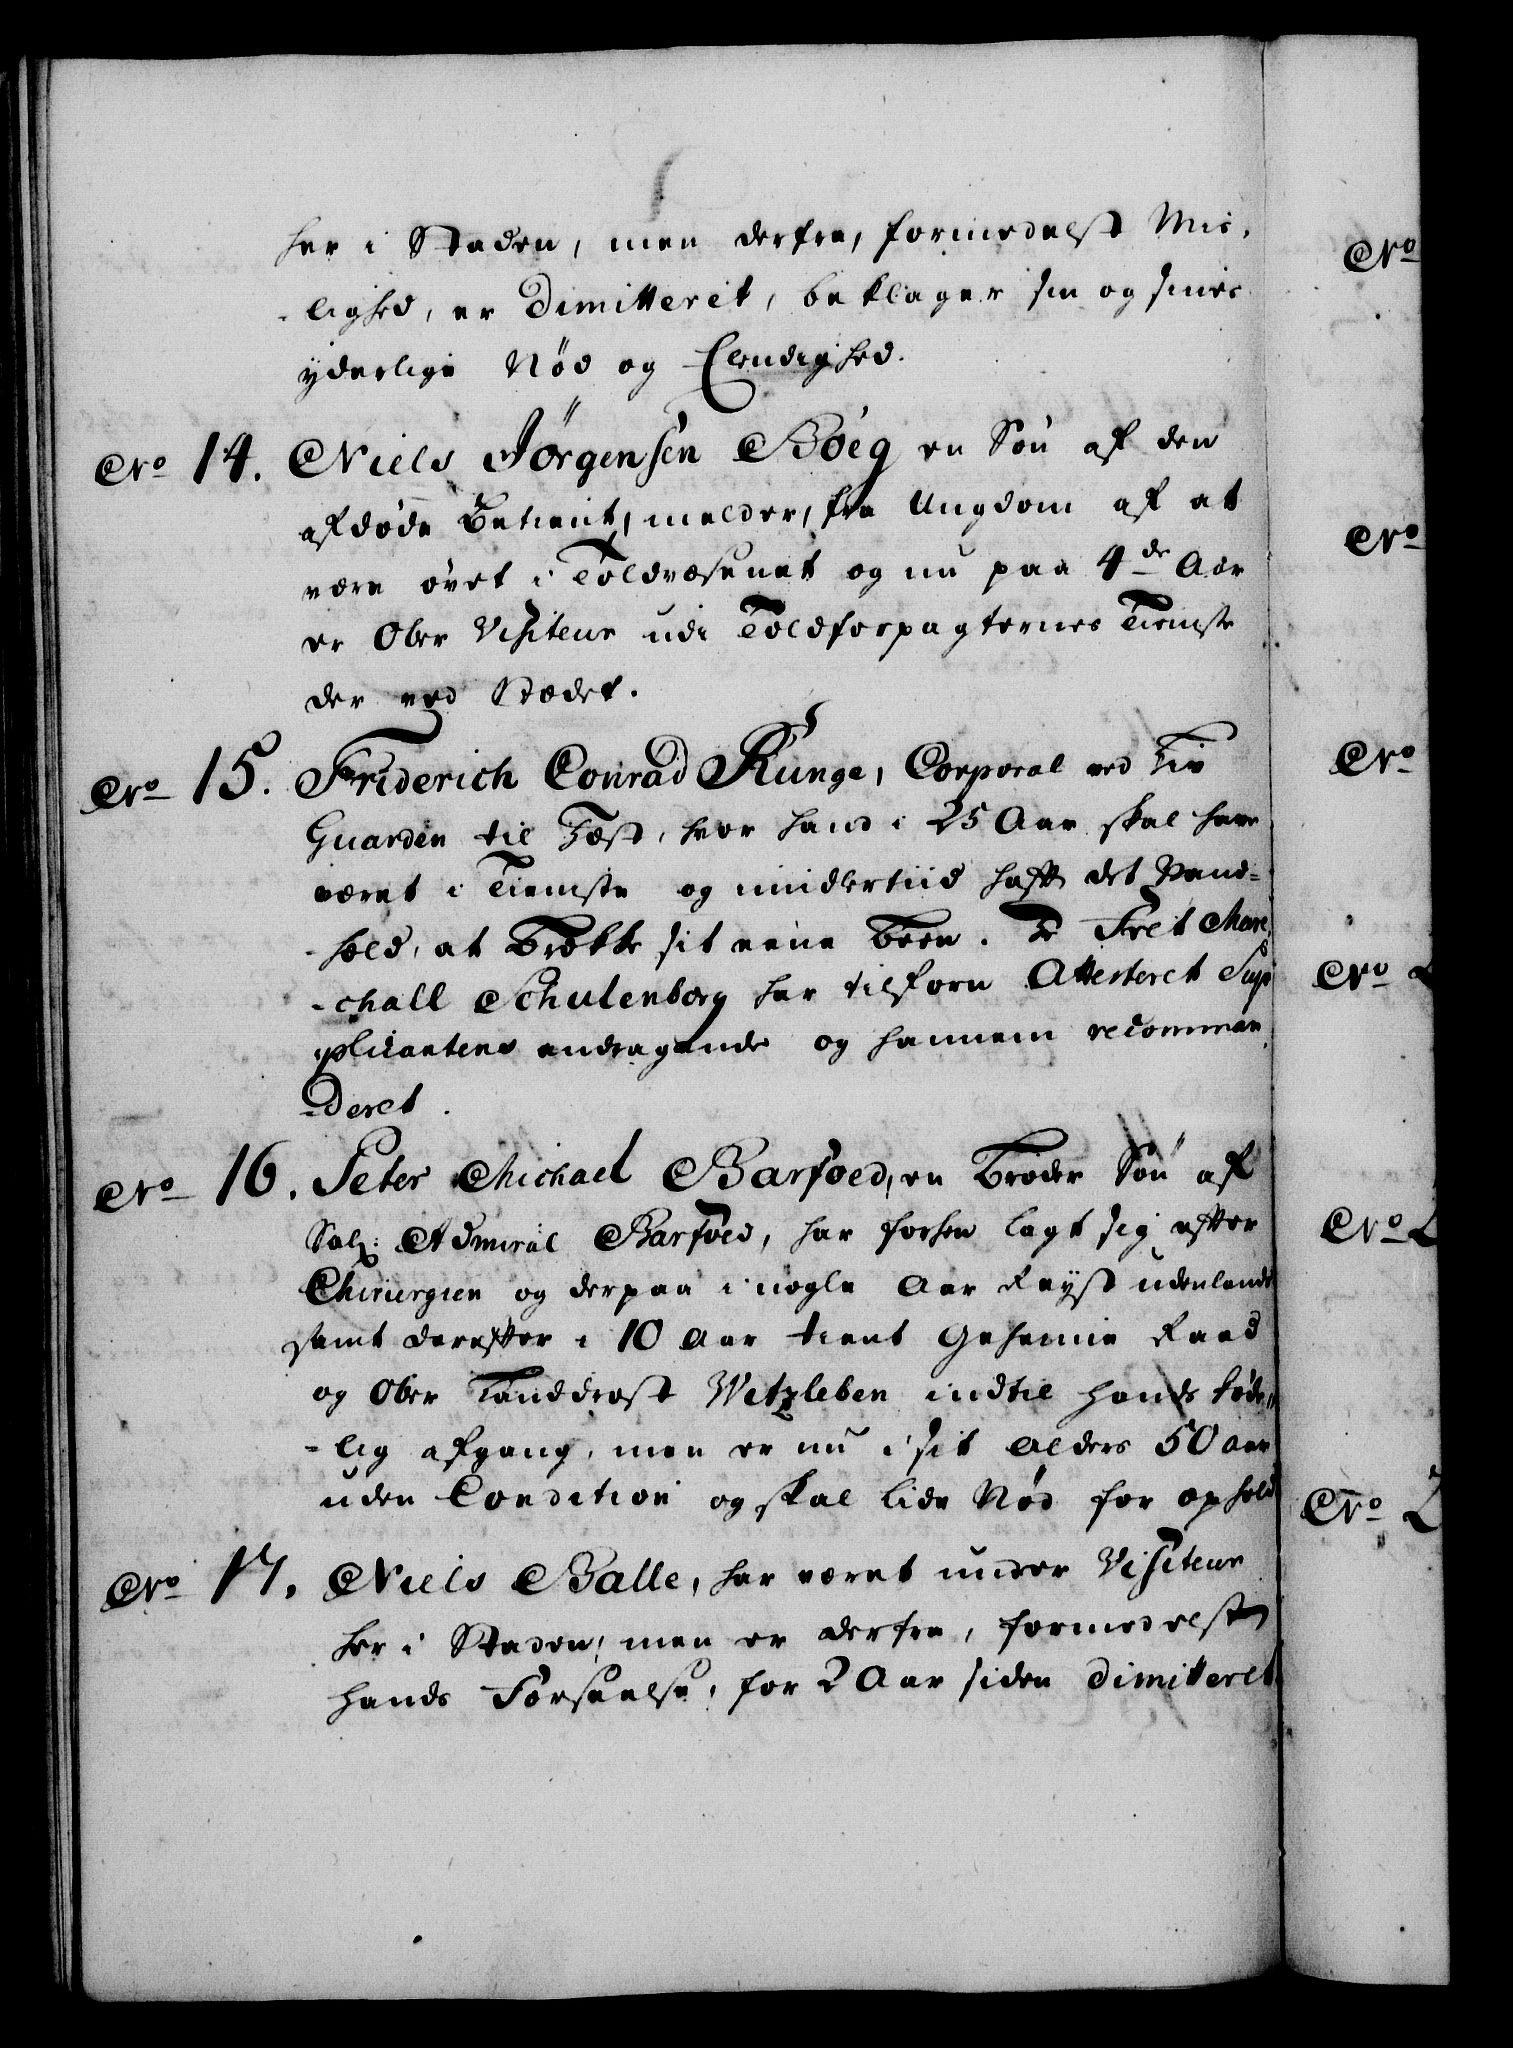 her i Staden, men derfra, formedelst Mis-
-lighed, er Dimitteret, beklager sin og sines
yderlige Nød og Elendighed.
No 14. Niels Jörgensen Böeg en Søn af den
afdøde Betient, melder, fra Ungdom af at
være øvet i Toldvæsenet og nu paa 4de Aar
er Ober Visiteur udi Toldforpagternes Tieniste
der ved Stædet.
No 15. Friderich Conrad Runge, Corporal ved Liv
Guarden til Fods, hvor hand i 25 Aar skal have
været i Tieniste og imidlertiid hafft det Vand-
-held, at Brække sit eene Been. Felt Mare-
-chall Schulenborg har tilforn Attesteret Sup-
plicantens andragende og hannem recomman-
-deret.
No 16. Peter Michael Barfoed, en Broder Søn af
Sal: Admiral Barfoed, har forhen lagt sig efter
Chirurgien og derpaa i nogle Aar Reyst udenlands
samt derefter i 10 Aar tient Geheime Raad
og Ober Landdrost Witzleben indtil hands død-
-lig afgang, men er nu i sit Alders 50 Aar
uden Condition og skal lide Nød for ophold
No 17. Niels Balle, har været under Visiteur
her i Staden, men er derfra, formedelst
hands Forseelse, for 2 Aar siden Dimitteret
No
No
No
No 2
No 2
No 2